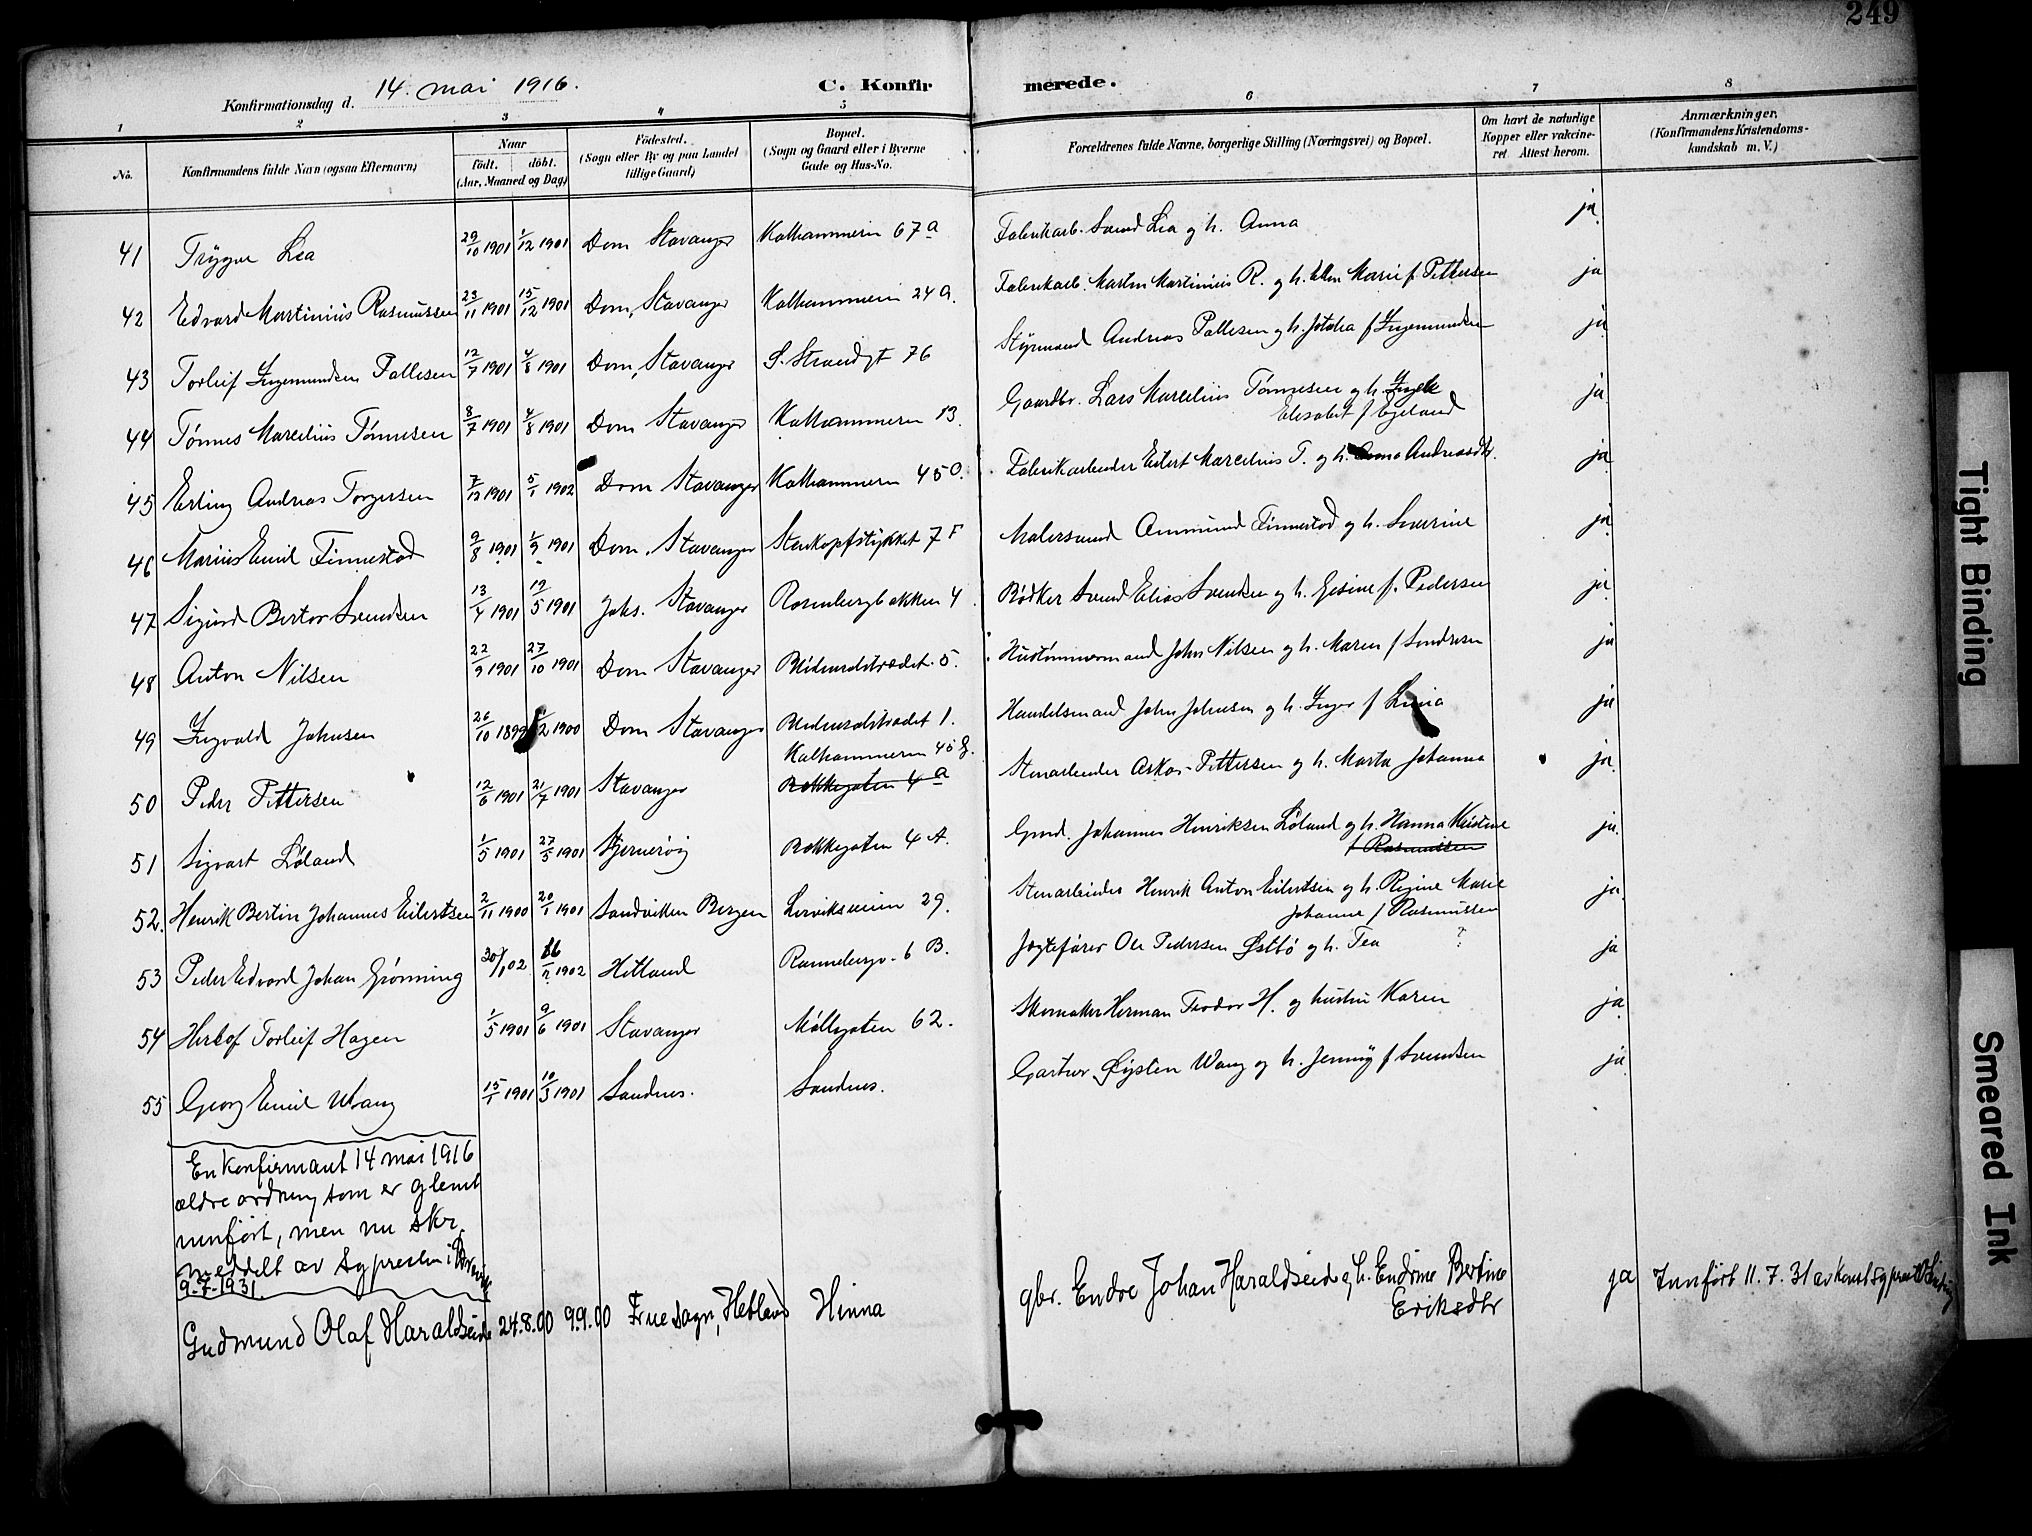 249
Konfirmationsdag d. 14. mai 1916. C. Konfirmerede.
1 2 3 4 5 6 7 8
No. Konfirmandens fulde Navn (ogsaa Efternavn) Naar födt. döbt. (Aar, Maaned og Dag) Födested. (Sogn eller By og paa Landet tillige Gaard) Bopæl. (Sogn og Gaard eller i Byerne Gade og Hus-No. Forældrenes fulde Navne, borgerlige Stilling (Næringsvei) og Bopæl. Om havt de naturlige Kopper eller vakcineret Attest herom. Anmærkninger. (Konfirmandens Kristendomskundskab m. V.)
41 Trygve Lea 29/10 1901 1/12 1901 Dom Stavanger Kalhammeren 67 a Fabrikarb. Svend Lea og h. Anna ja
42 Edvard Martinius Rasmussen 23/11 1901 15/12 1901 Dom, Stavanger Kalhammeren 24 a. Fabrikarb. Martin Martinius R. og h. Ellen Marie f. Pettersen ja
43 Torleif Ingemundsen Pallesen 12/7 1901 4/8 1901 Dom, Stavanger S. Strandgt 76 Styrmand Andreas Pallesen og h. f Ingemundsen ja
44 Tønnes Marcelius Tønnesen 8/7 1901 4/8 1901 Dom Stavanger Kalhammeren 13. Gaardbr. Lars Marcelius Tønnesen og h.
Elisabet f Egeland ja
45 Erling Andreas Torgersen 7/12 1901 5/1 1902 Dom Stavanger Kalhammeren 45 Fabrikarbeider Eilert Marcelius T. og h. Anna Andreasdtr. ja
46 Marius Emil Finnestad 9/8 1901 1/9 1901 Dom. Stavanger Stenkopfstykket 7 F Malersvend Ommund Finnestad og h. Severine ja
47 Sigurd Bertor Svendsen 13/4 1901 12/5 1901 Johs. Stavanger Rosenbergbakken 4 Bødker Svend Elias Svendsen og h. Gesine f. Pedersen ja
48 Anton Nilsen 22/9 1901 27/10 1901 Dom Stavanger 5. Hustømmermand John Nilsen og h. Maren f Sondresen ja
49 Ingvald Johnsen 26/10 1899 /2 1900 Dom Stavanger 1. Handelsmand John Johnsen og h. Inger f ja
Kalhammeren 45 g.
50 Peder Pettersen 12/6 1901 21/7 1901 Stavanger Bakkegaten 4 a Stenarbeider Askor Pettersen og h. Marta Johanna ja
51 Sigvart Löland 1/5 1901 27/5 1901 Sjernerøy Bakkegaten 4 A. Gmd. Johannes Henriksen Löland og h. Hanna Kristine ja.
f Rasmussen
52. Henrik Bertin Johannes Eilertsen 2/11 1900 20/1 1901 Sandviken Bergen Lerviksveien 29. Stenarbeider Henrik Anton Eilertsen og h. Regine Marie ja
Johanne f Rasmussen
53 Peder Edvard Johan Grønning 30/1 02 16/2 1902 Hetland Rannebergv. 6 B. Jagtefører Ole Pedersen Østbö og h. Tea ? ja
54 Herlof Torleif Hagen 1/5 1901 9/6 1901 Stavanger Møllegaten 62. Skomaker Herman Teodor H. og hustru Karen ja
55 Georg Emil Wang 15/1 1901 10/3 1901 Sandnes. Sandnes. Gartner Øysten Wang og h. Jenny f Svendsen ja
En konfirmant 14 mai 1916
ældre ordning som er glemt
innført, men nu skr.
meddelt av sypresten i
9-7-1931.
Gudmund Olaf Haraldseide 24.8.00 9.9.00 Frue sogn, Hetland Hinna gbr. Endre Johan Haraldseid og h. Endrine Bertine
Eriksdtr ja Innført 11.7.31 av
Tight Binding
Smeared Ink